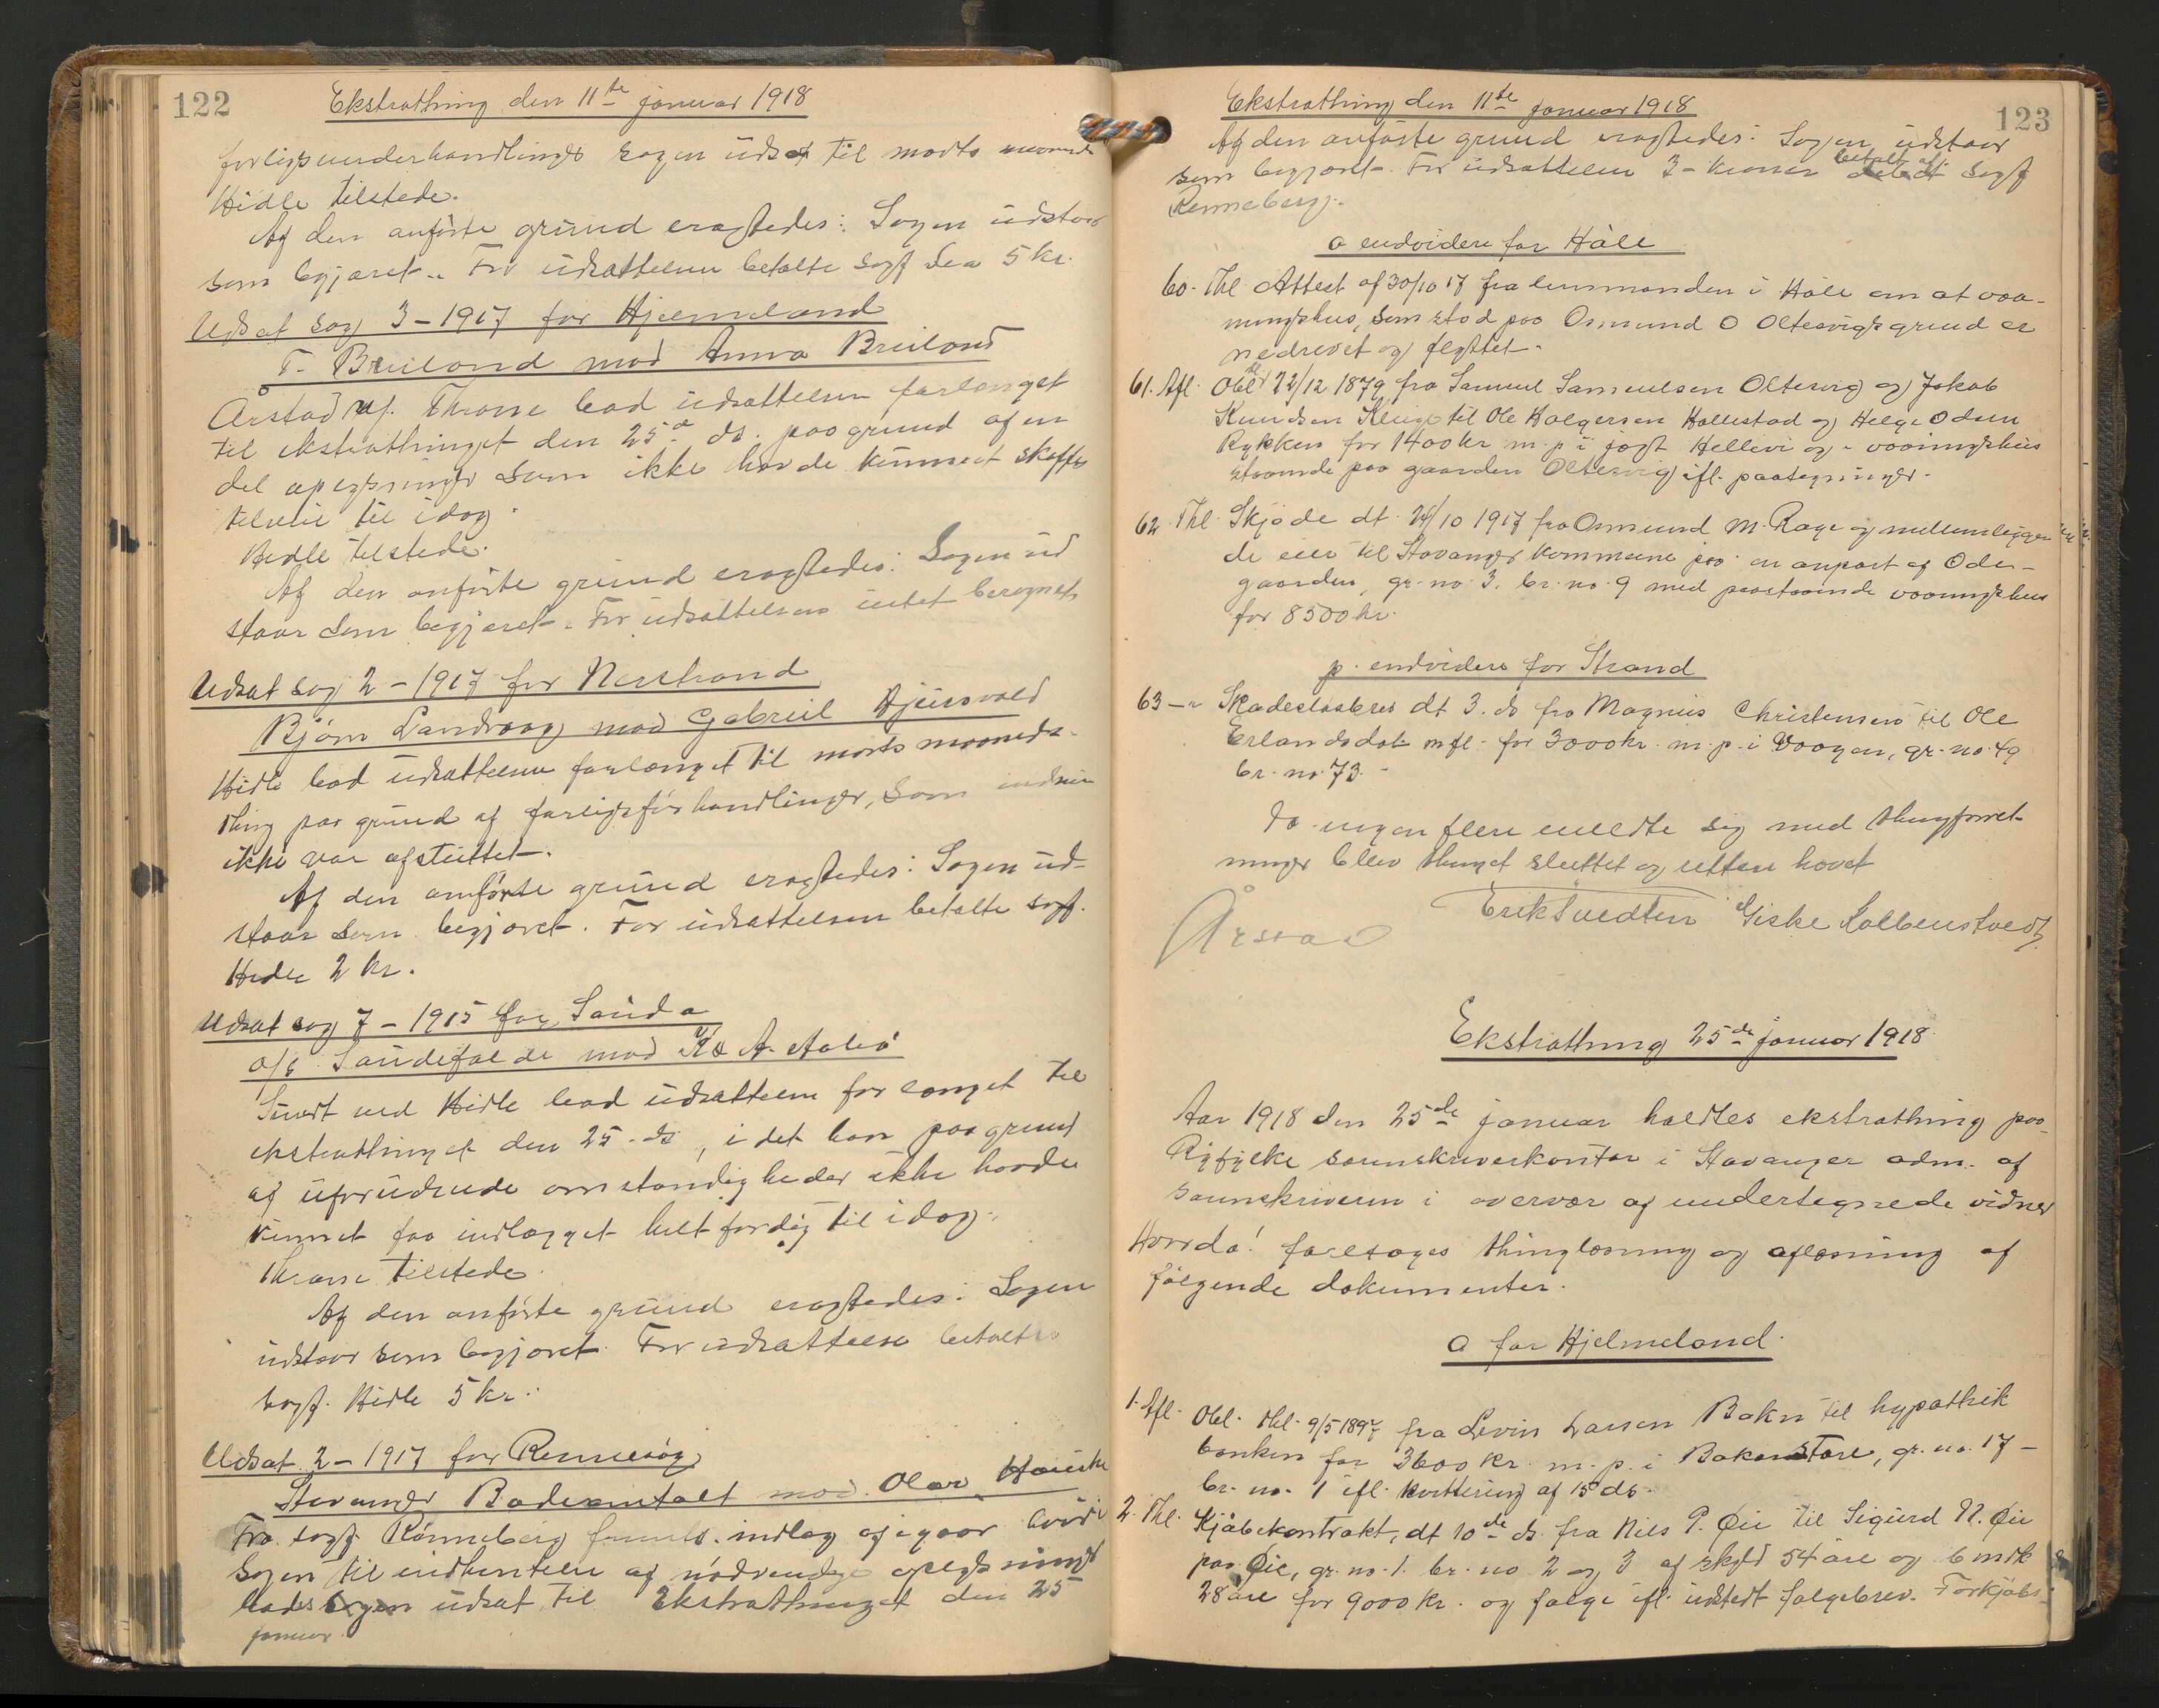 122
Ekstrathing den 11te januar 1918
forligsunderhandlinger sagen udsat til marts
Hidle tilstede.
Af den anførte grund eragtedes: Sagen udstaar
som begjæret. For udsættelsen betalte sagf 5 kr.
Udsat sag 3-1917 for Hjelmeland
T. Breiland mod Anna Breiland
Årstad Thrane bad udsættelsen forlænget
til ekstrathinget den 25de ds. paa grund af en
del oplysninger som ikke havde kunnet skaffes
tilveie til idag.
Hidle tilstede.
Af den anførte grund eragtedes: Sagen ud
staar som begjæret. For udsættelsen intet beregnet
Udsat sag 2-1917 for Nerstrand
Bjørn Landraag mod Gabriel
Hidle bad udsættelsen forlænget til marts maaneds
thing paa grund af forligsforhandlinger, som endnu
ikke var afsluttet.
Af den anførte grund eragtedes: Sagen ud-
staar som begjæret. For udsættelsen betalte sagf.
Hidle 2 kr.
Udsat sag 7-1915 for Sauda
a/s Saudefaldene mod
ved Hidle bad udsættelsen forlænget til
ekstrathinget den 25. ds, i det han paa grund
af uforudsede omstændigheder ikke havde
kunnet faa indlægget helt færdig til idag.
Thrane tilstede.
Af den anførte grund eragtedes: Sagen
udstaar som begjæret. For udsættelsen betaltes
sagf. Hidle 5 kr.
Udsat 2-1917 for Rennesøy
Stavanger Badeanstalt mod Olav Hauske
Fra sagf. Rønneberg fremls. indlæg af igaar hvori
sagen til indhentelse af nødvendige oplysninger
bades udsat til Ekstrathinget den 25
januar.
Ekstrathing den 11te januar 1918
123
Af den anførte grund eragtedes: Sagen udstaar
som begjæret. For udsættelsen 3 kroner betalt af sagf
Rønneberg.
o endvidere for Håle
60. Thl. Attest af 30/10 17 fra lensmanden i Håle om at vaa-
ningshus, som stod paa Osmund O Oltesvigs grund er
nedrevet og flyttet.
61. Afl. Obl 22/12 1879 fra Samuel Samuelsen Oltesvig og Jakob
Knudsen Kluge til Ole Holgersen Hallestad og Helge Odsen
Rykken for 1400 kr m.p i jagt Hellevi og vaaningshus
staaende paa gaarden Oltesvig ifl. paategninger.
62. Thl. Skjøde dt. 24/10 1917 fra Osmund M. Rage og mellemliggen
de eier til Stavanger kommune paa en anpart af Ode-
gaarden, gr. no 3. br. no. 9 med paastaaende vaaningshus
for 8500 kr.
p. endvidere for Strand
63 — " Skadesløsbrev dt 3. ds fra Magnus Christensen til Ole
Erlandsdal m fl. for 3000 kr. m.p. i Vaagen, gr. no. 49
br. no. 73.
Da ingen flere meldte sig med thingforret
ninger blev thinget sluttet og retten hævet
Årstad Erik Tvedten Giske Kolbenstvedt
Ekstrathing 25de januar 1918
Aar 1918 den 25de januar holdtes ekstrathing paa
Ryfylke sorenskriverkontor i Stavanger adm. af
sorenskriveren i overvær af undertegnede vidner
Hvorda! foretoges thinglæsning og aflæsning af
følgende dokumenter.
a for Hjelmeland.
1. Afl. Obl. thl. 9/5 1897 fra Levin Larsen Bokn til hypothek
banken for 3600 kr. m.p. i Boknstøre, gr. no. 17 -
br. no. 1 ifl. kvittering af 15 ds.
2. Thl. Kjøbekontrakt, dt 10de ds. fra Nils P. Øie til Sigurd N. Øie
paa Øie, gr. no. 1. br. no 2 og 3 af skyld 54 øre og 6 mrk
28 øre for 9000 kr. og følge ifl. udstedt følgebrev. Forkjøbs-